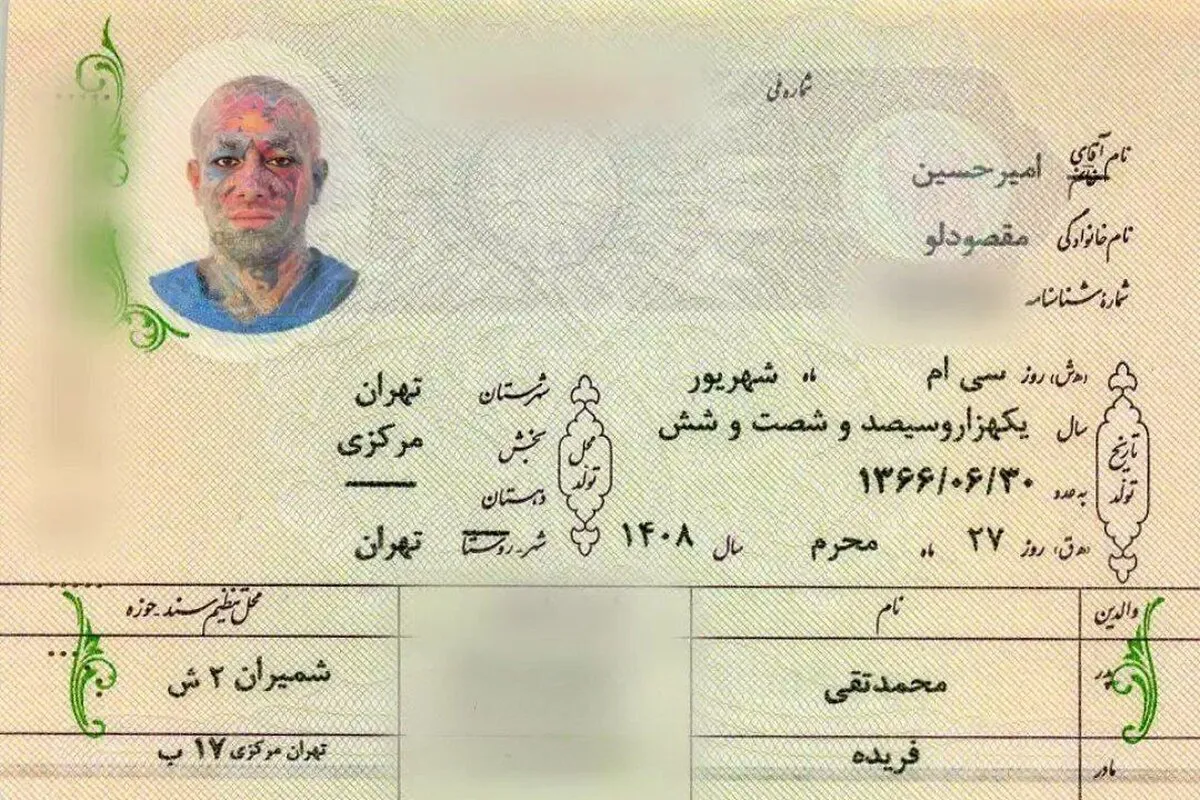 شماره ملی
نام آقای خانم امیرحسین
نام خانوادگی مقصودلو
شمارهٔ شناسنامه
تاریخ تولد
(ه‍.ش) روز سی ام ماه شهریور
سال یکهزاروسیصد و شصت و شش
به عدد ۱۳۶۶/۰۶/۳۰
(ه‍.ق) روز ۲۷ ماه محرم سال ۱۴۰۸
محل تولد
شهرستان تهران
بخش مرکزی
دهستان ——
شهر-روستا تهران
والدین نام محل تنظیم سند-حوزه
پدر محمدتقی شمیران ۲ ش
مادر فریده تهران مرکزی ۱۷ ب